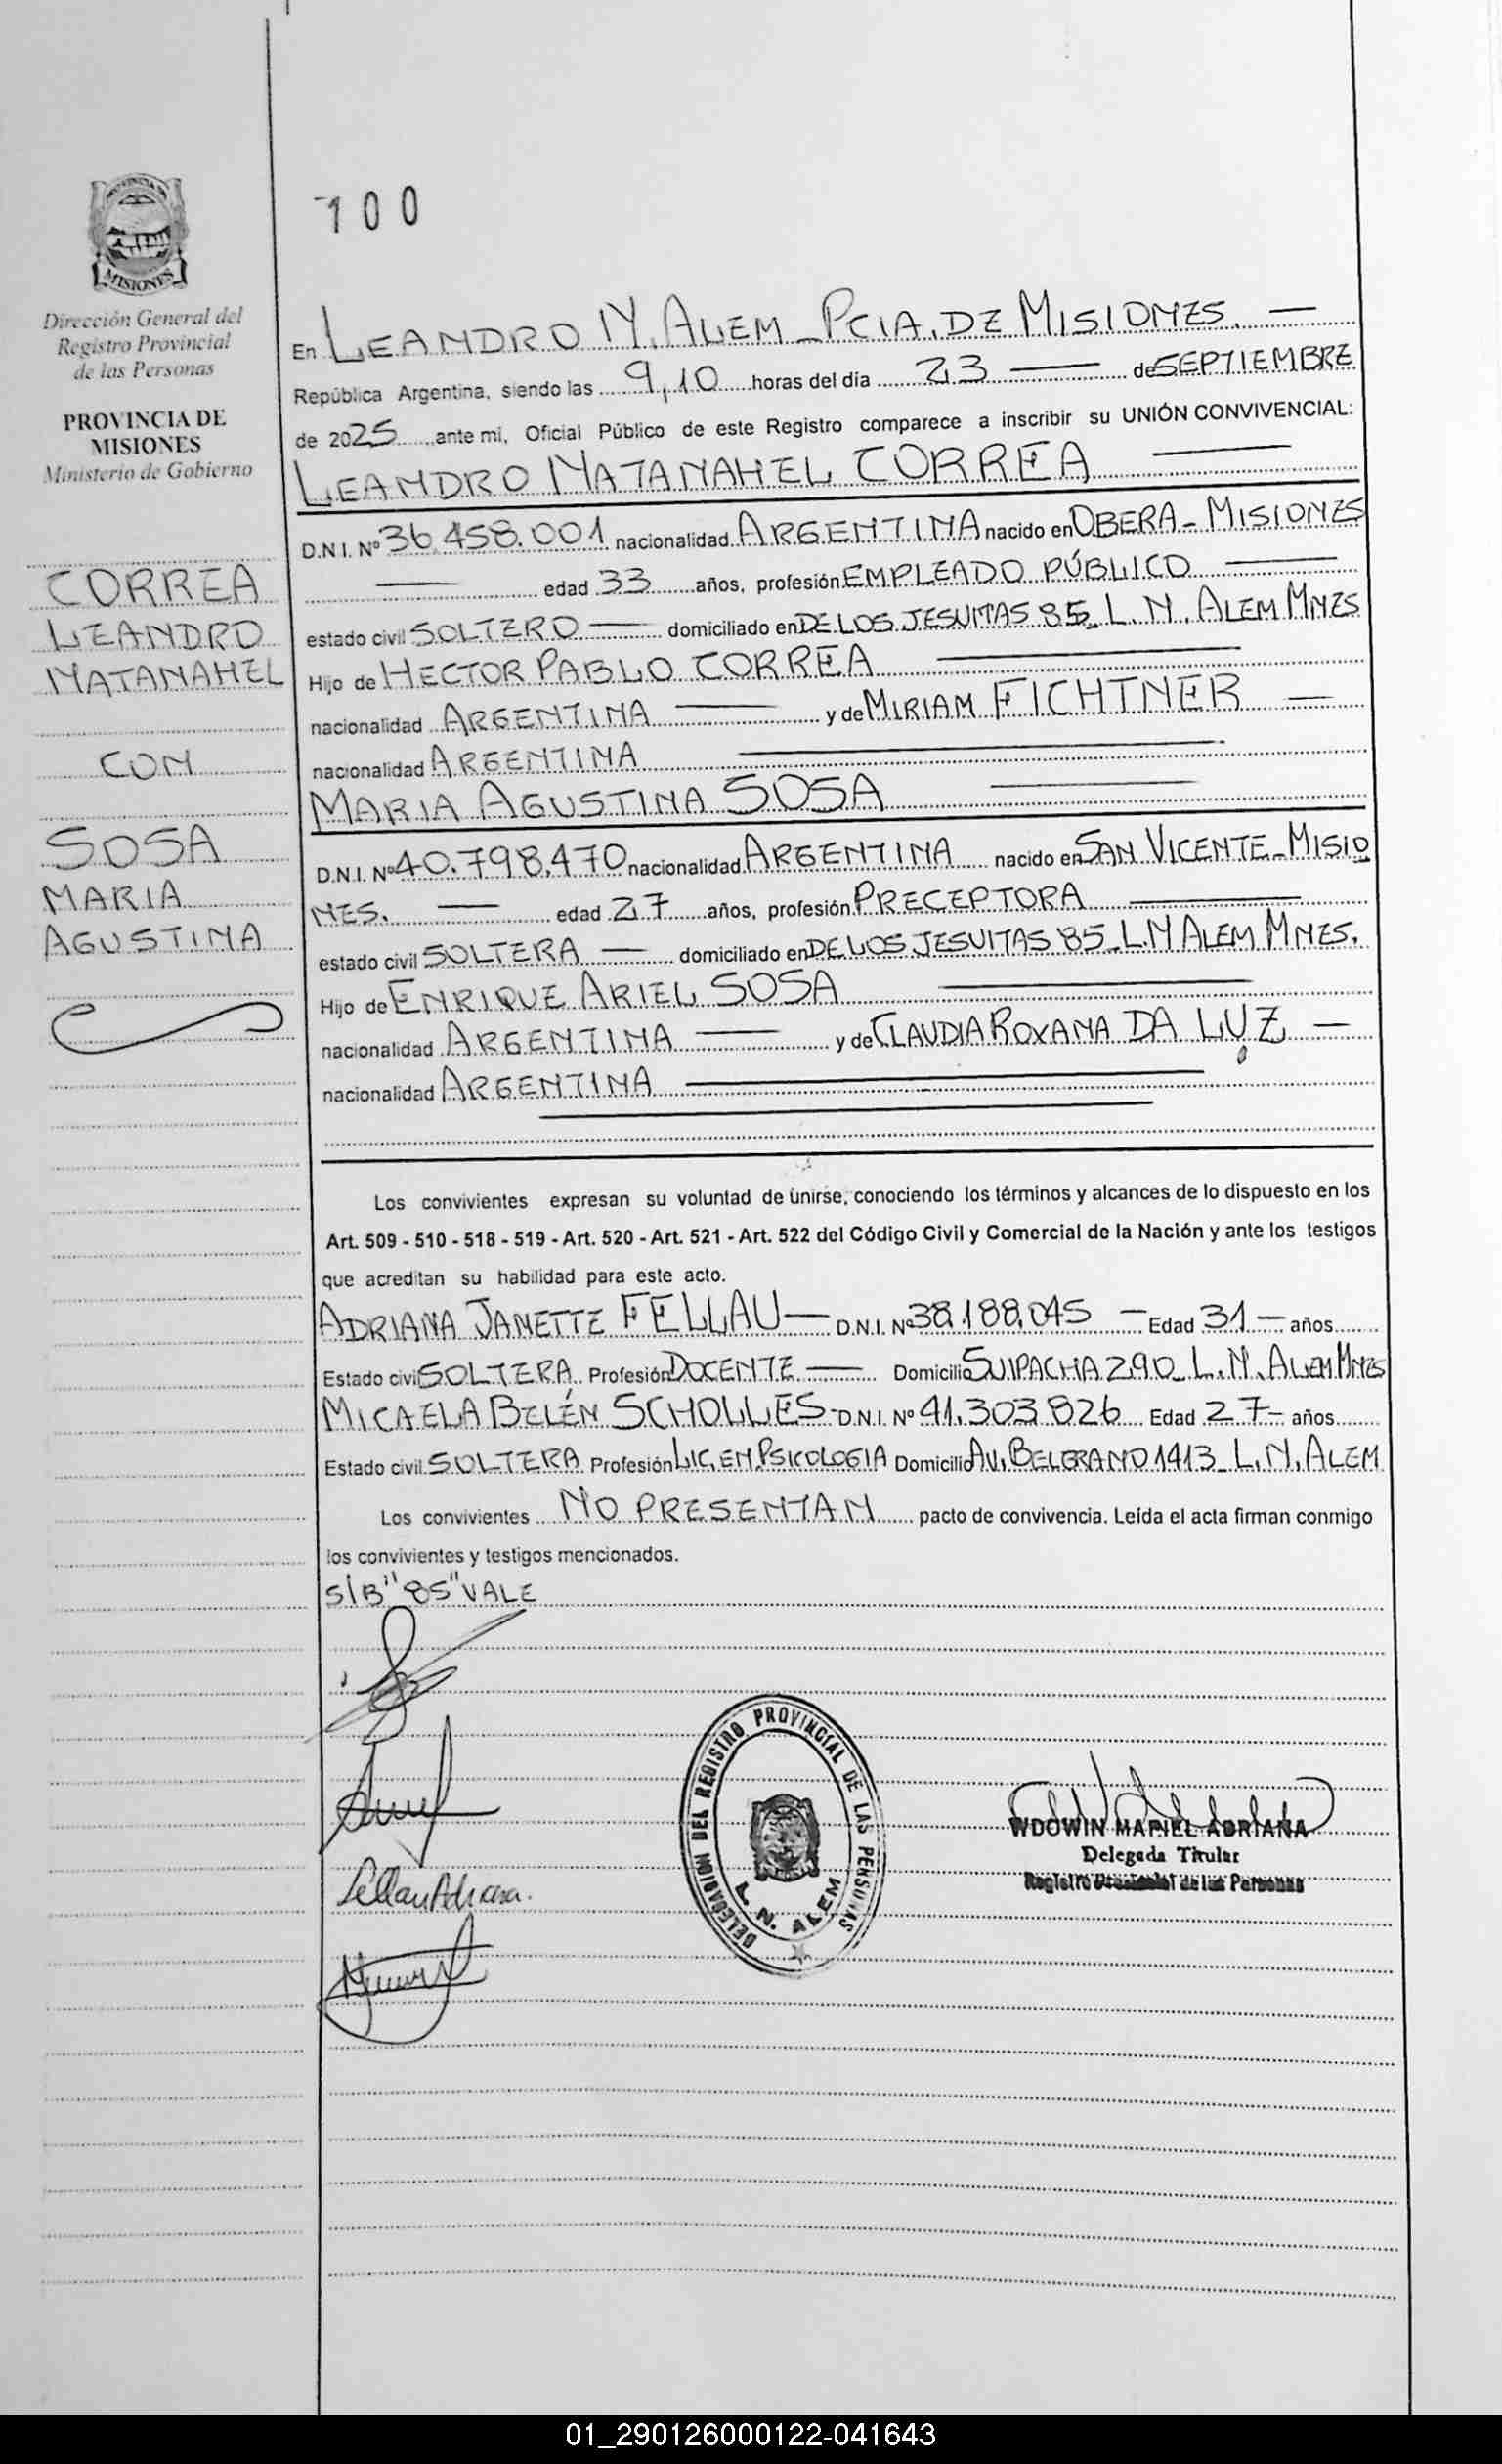 PROVINCIA DE
MISIONES
Dirección General del
Registro Provincial
de las Personas
PROVINCIA DE
MISIONES
Ministerio de Gobierno
CORREA
LEANDRO
NATANAHEL
CON
SOSA
MARIA
AGUSTINA
100
En LEANDRO N. ALEM - PCIA. DE MISIONES. —
República Argentina, siendo las 9,10 horas del día 23 — de SEPTIEMBRE
de 2025 ante mi, Oficial Público de este Registro comparece a inscribir su UNIÓN CONVIVENCIAL:
LEANDRO NATANAHEL CORREA —
D.N.I. Nº 36.458.001 nacionalidad ARGENTINA nacido en OBERA - MISIONES
— edad 33 años, profesión EMPLEADO PÚBLICO —
estado civil SOLTERO — domiciliado en DE LOS JESUITAS 85 - L. N. ALEM MNES
Hijo de HECTOR PABLO CORREA —
nacionalidad ARGENTINA — y de MIRIAM FICHTNER —
nacionalidad ARGENTINA —
MARIA AGUSTINA SOSA —
D.N.I. Nº 40.798.470 nacionalidad ARGENTINA nacido en SAN VICENTE - MISIO
NES. — edad 27 años, profesión PRECEPTORA —
estado civil SOLTERA — domiciliado en DE LOS JESUITAS 85 - L.N ALEM MNES.
Hijo de ENRIQUE ARIEL SOSA —
nacionalidad ARGENTINA — y de CLAUDIA ROXANA DA LUZ —
nacionalidad ARGENTINA —
Los convivientes expresan su voluntad de unirse, conociendo los términos y alcances de lo dispuesto en los
Art. 509 - 510 - 518 - 519 - Art. 520 - Art. 521 - Art. 522 del Código Civil y Comercial de la Nación y ante los testigos
que acreditan su habilidad para este acto.
ADRIANA JANETTE FELLAU — D.N.I. Nº 38.188.045 — Edad 31 — años
Estado civil SOLTERA Profesión DOCENTE — Domicilio SUIPACHA 290 - L. N. ALEM MNES
MICAELA BELÉN SCHOLLES - D.N.I. Nº 41.303.826 Edad 27 - años
Estado civil SOLTERA Profesión LIC. EN PSICOLOGIA Domicilio AV. BELGRANO 1413 - L. N. ALEM
Los convivientes NO PRESENTAN pacto de convivencia. Leída el acta firman conmigo
los convivientes y testigos mencionados.
S/B "85" VALE
Fellau Adriana.
DELEGACION DEL REGISTRO PROVINCIAL DE LAS PERSONAS
L. N. ALEM
WDOWIN MARIEL ADRIANA
Delegada Titular
Registro Provincial de las Personas
01_290126000122-041643